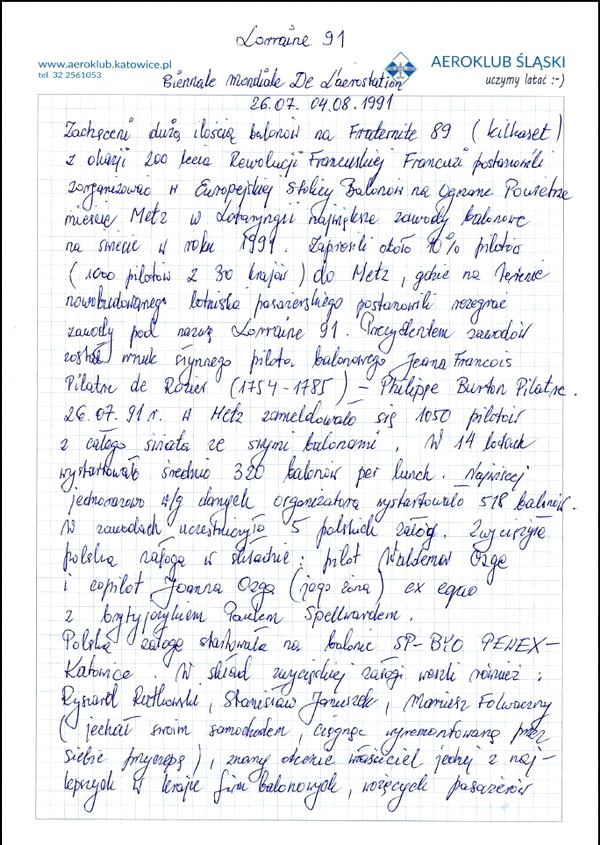 Lorraine 91
www.aeroklub.katowice.pl
tel. 32 2561053
AEROKLUB ŚLĄSKI
uczymy latać :-)
Biennale Mondiale De L'aerostation
26.07. 04.08.1991
Zachęceni dużą ilością balonów na Fraternite 89 (kilkaset)
z okazji 200 lecia Rewolucji Francuskiej Francuzi postanowili
zorganizować w Europejskiej Stolicy Balonów na Ogrzane Powietrze
mieście Metz w Lotaryngii największe zawody balonowe
na świecie w roku 1991. Zaprosili około 90% pilotów
(1000 pilotów z 30 krajów) do Metz, gdzie na terenie
nowobudowanego lotniska pasażerskiego postanowili rozegrać
zawody pod nazwą Lorraine 91. Prezydentem zawodów
został wnuk słynnego pilota balonowego Jeana Francois
Pilatre de Rozier (1754-1785) - Philippe Buron Pilatre.
26.07.91 r. w Metz zameldowało się 1050 pilotów
z całego świata ze swymi balonami. W 14 lotach
wystartowało średnio 320 balonów per lunch. Najwięcej
jednorazowo w/g danych organizatora wystartowało 518 balonów.
W zawodach uczestniczyło 5 polskich załóg. Zwyciężyła
polska załoga w składzie: pilot Waldemar Ozga
i copilot Joanna Ozga (jego żona) ex equo
z brytyjczykiem Paulem Spellwardem.
Polska załoga startowała na balonie SP-BYO PENEX-
Katowice. W skład zwycięskiej załogi weszli również:
Ryszard Rutkowski, Stanisław Januszek, Mariusz Folwaczny
(jechał swoim samochodem, ciągnąc wyremontowaną przez
siebie przyczepę), znany obecnie właściciel jednej z naj-
lepszych w kraju firm balonowych, wożących pasażerów